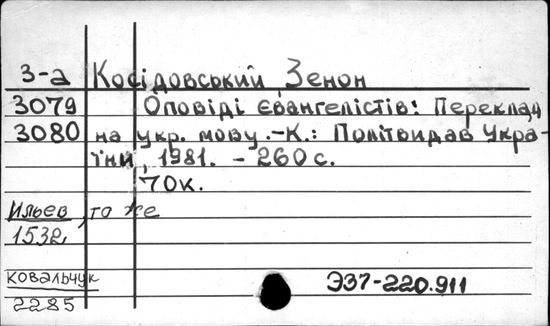 3-а Косідовський Зенон
3079 Оповіді євангелістів: Переклад
3080 на укр. мову. -К.: Політвидав Укра-
їни, 1981. - 260 с.
70к.
Ильев, то же
1532,
ковальчук Э37-220.911
2285